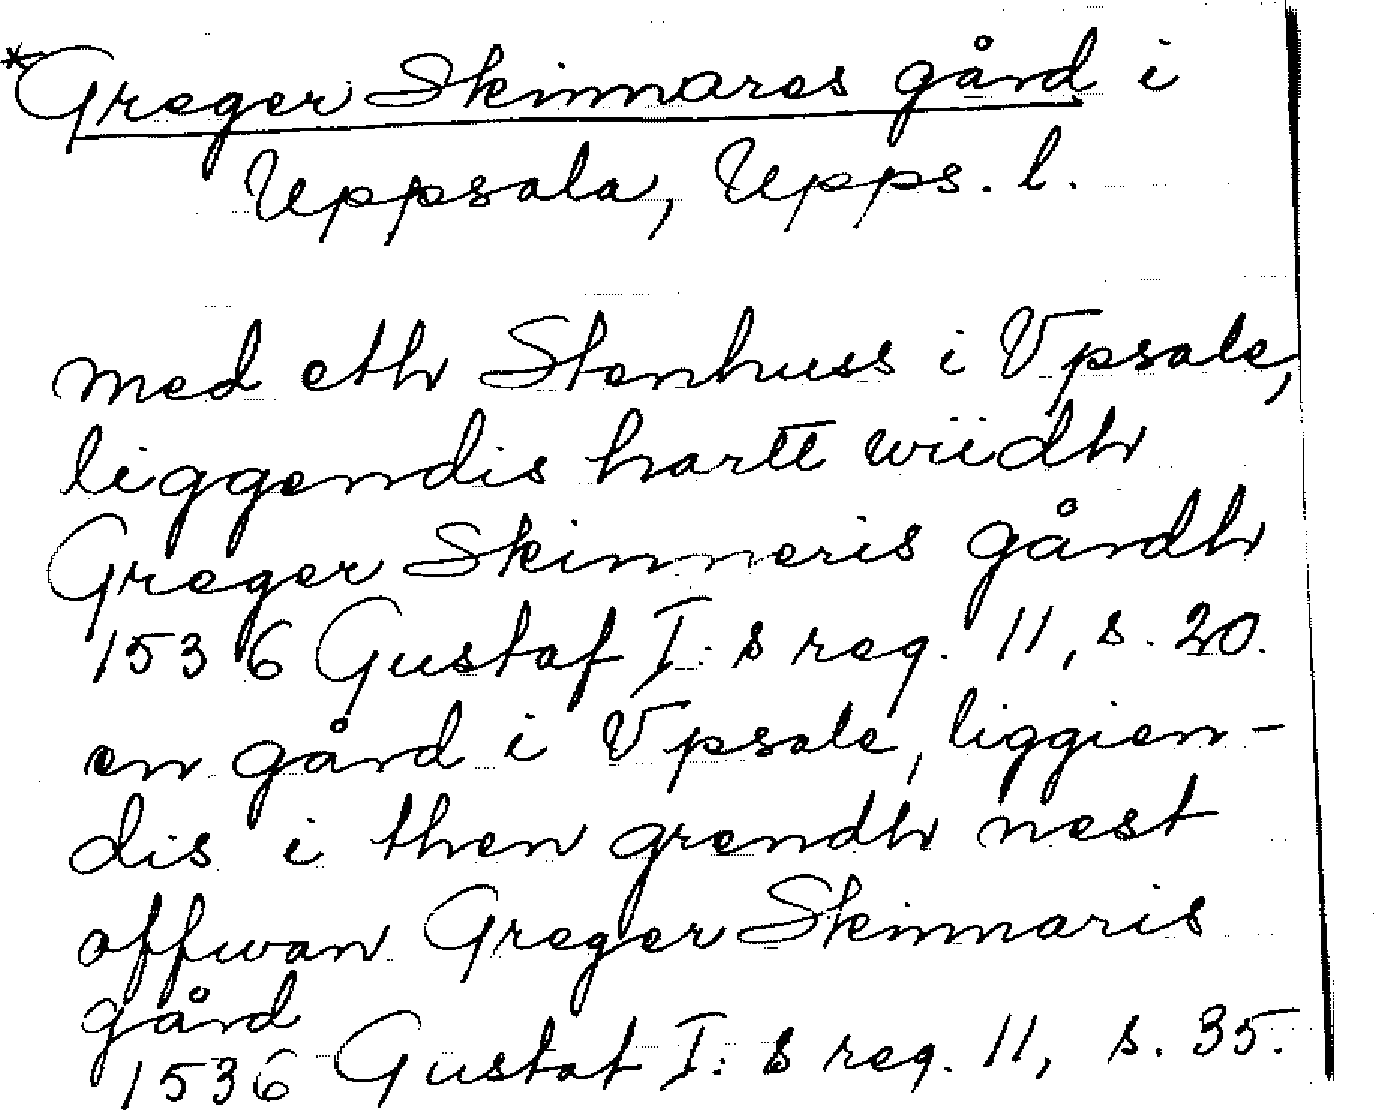 *Greger Skinnares gård i
Uppsala, Upps. l.
med eth Stenhuss i Vpsale,
liggendis hartt wiidh
Greger Skinneris gårdh
1536 Gustaf I:s reg. 11, s. 20.
en gård i Vpsale, liggien-
dis i then grendh nest
offwan Greger Skinnaris
gård
1536 Gustaf I:s reg. 11, s. 35.